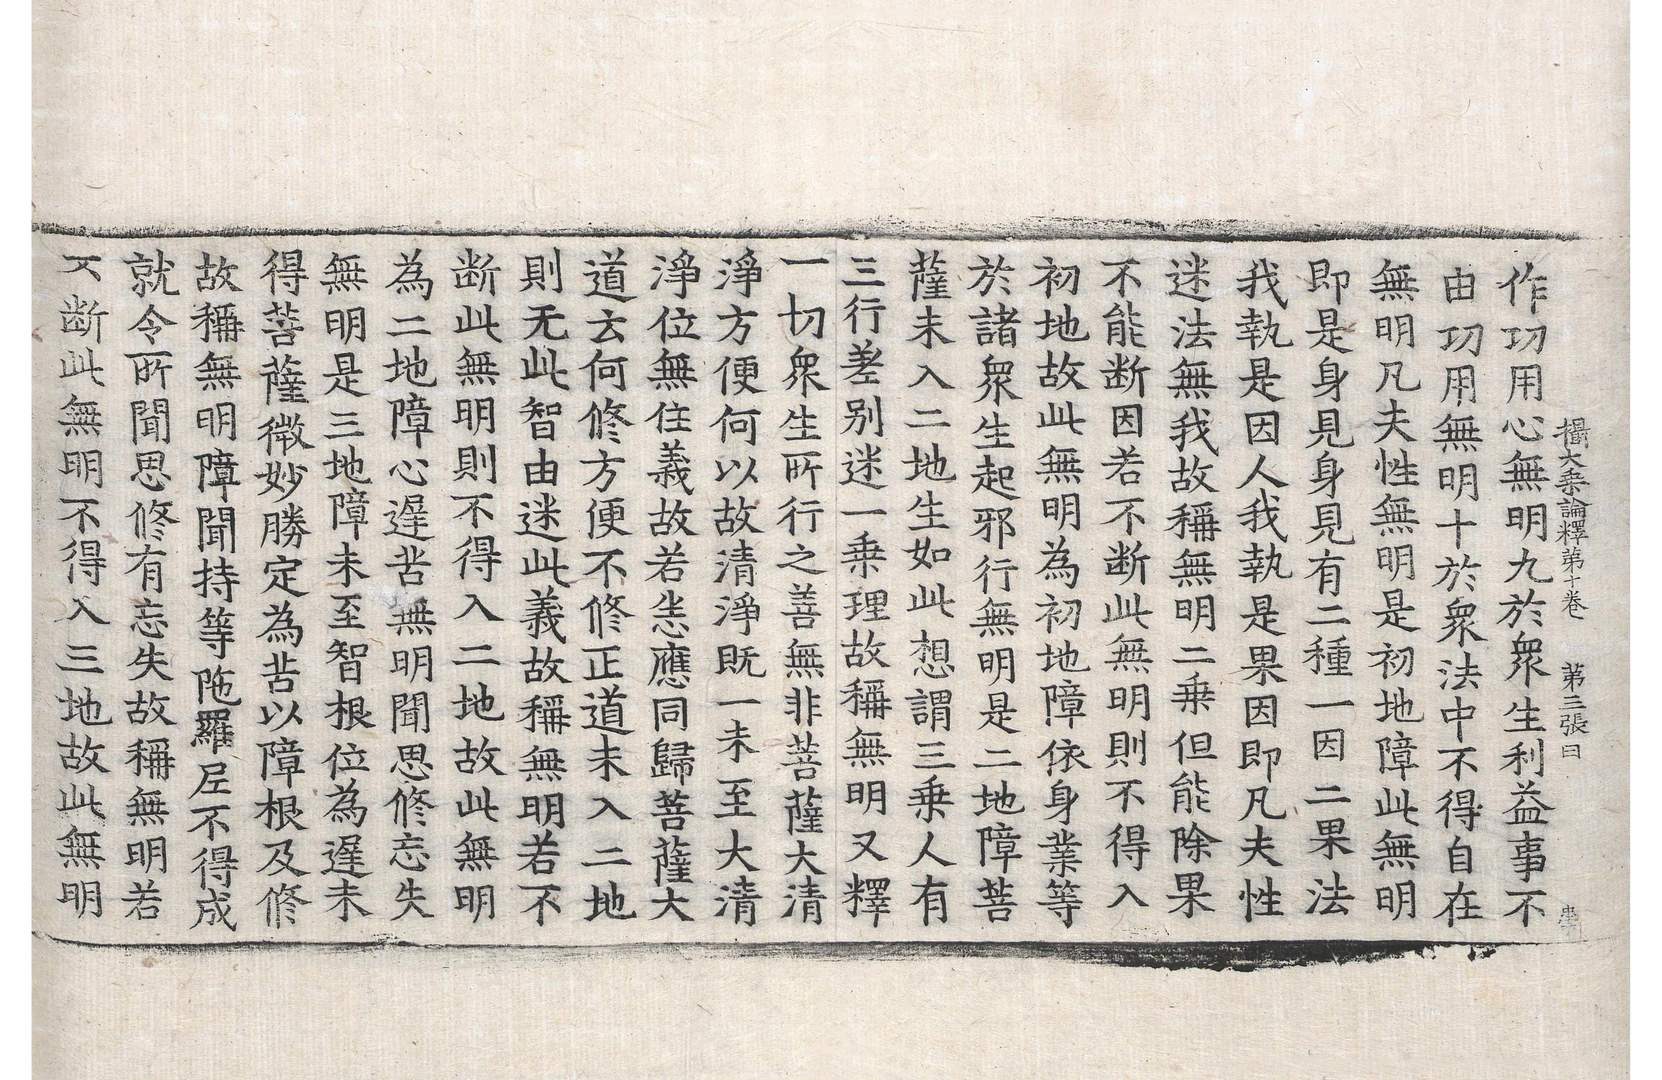 攝大乗論釋第十卷 第三張 曰
作功用心無明九於衆生利益事不
由功用無明十於衆法中不得自在
無明凡夫性無明是初地障此無明
即是身見身見有二種一因二果法
我執是因人我執是果因即凡夫性
迷法無我故稱無明二乗但能除果
不能断因若不断此無明則不得入
初地故此無明為初地障依身業等
於諸衆生起邪行無明是二地障菩
薩未入二地生如此想謂三乗人有
三行差别迷一乗理故稱無明又釋
一切衆生所行之善無非菩薩大清
淨方便何以故清淨既一未至大清
淨位無住義故若恙應同歸菩薩大
道云何修方便不修正道未入二地
則无此智由迷此義故稱無明若不
断此無明則不得入二地故此無明
為二地障心遅苦無明聞思修忘失
無明是三地障未至智根位為遅未
得菩薩微妙勝定為苦以障根及修
故稱無明障聞持等陁羅尼不得成
就令所聞思修有忘失故稱無明若
不断此無明不得入三地故此無明